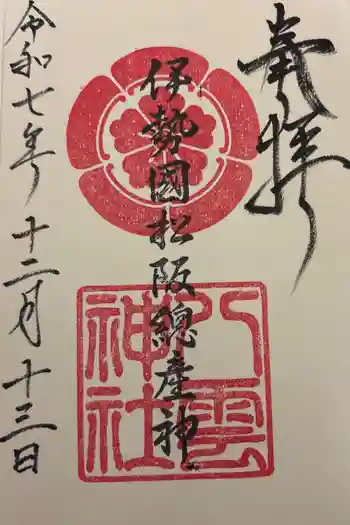 奉拝
伊勢國松阪總産神
八雲神社
令和七年十二月十三日